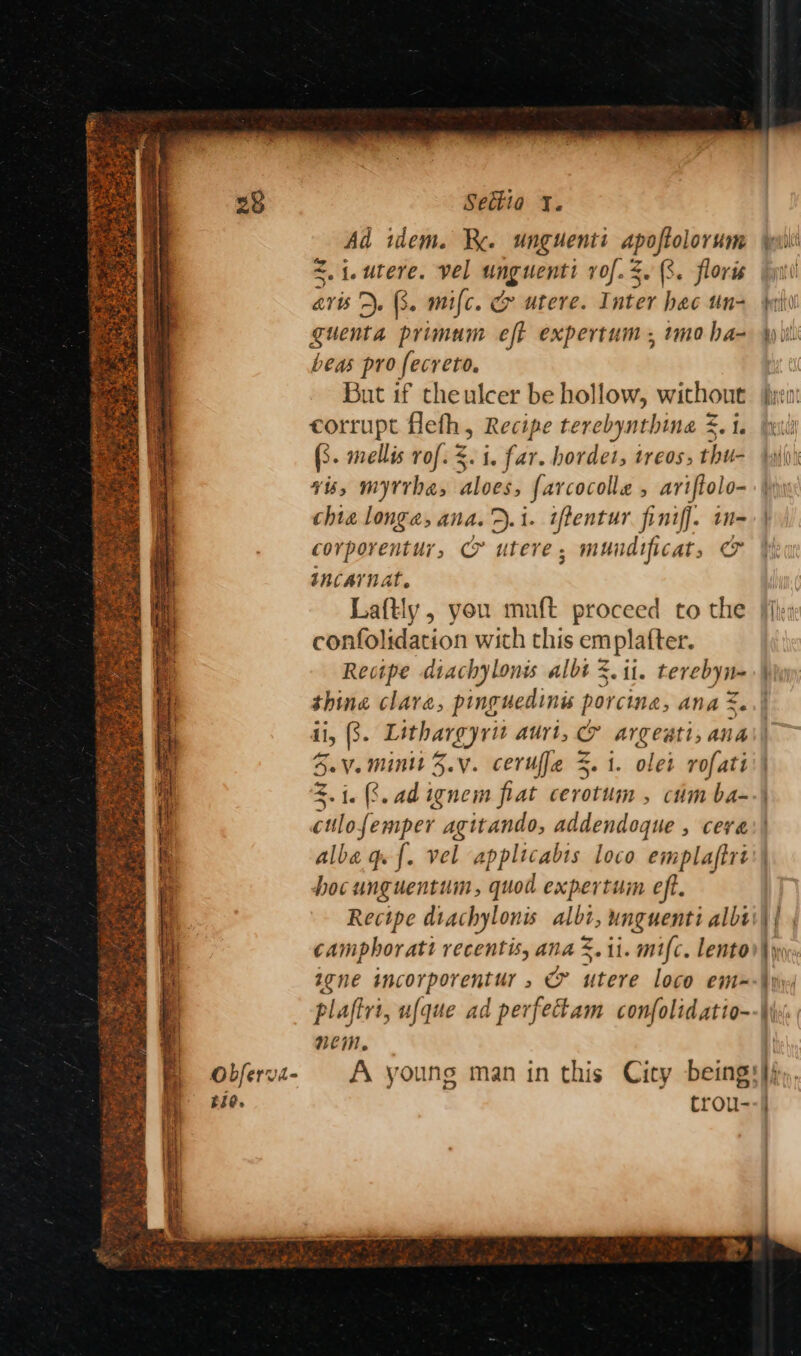 28 Sectio I.
Ad idem. ℞. unguenti apoſtolorum
℥. i. utere. vel unguenti roſ. ℥. ß. floris
æris ℈. ß. miſc. & utere. Inter hæc un-
guenta primum eſt expertum; imo ha-
beas pro ſecreto.
But if the ulcer be hollow, without
corrupt fleſh, Recipe terebynthinæ ℥. i.
ß. mellis roſ. ℥. i. far. hordei, ireos, thu-
ris, myrrhæ, aloes, ſarcocollæ, ariſtolo-
chiæ longæ, ana. ℈. i. iſtentur finiſſ. in-
corporentur, & utere, mundificat, &
incarnat.
Laſtly, you muſt proceed to the
conſolidation with this emplaſter.
Recipe diachylonis albi ℥. ii. terebyn-
thinæ claræ, pinguedinis porcinæ, ana ℥.
ii, ß. Lithargyrii auri, & argenti, ana
ʒ. v. minii ʒ. v. ceruſſæ ℥. i. olei roſati
℥. i. ß. ad ignem fiat cerotum, cum ba-
culo ſemper agitando, addendoque, ceræ
albæ q. ſ. vel applicabis loco emplaſtri
hoc unguentum, quod expertum eſt.
Recipe diachylonis albi, unguenti albi
camphorati recentis, ana ℥. ii. miſc. lento
igne incorporentur, & utere loco em-
plaſtri, uſque ad perfectam conſolidatio-
nem.
Obſerva- A young man in this City being
tio. trou-